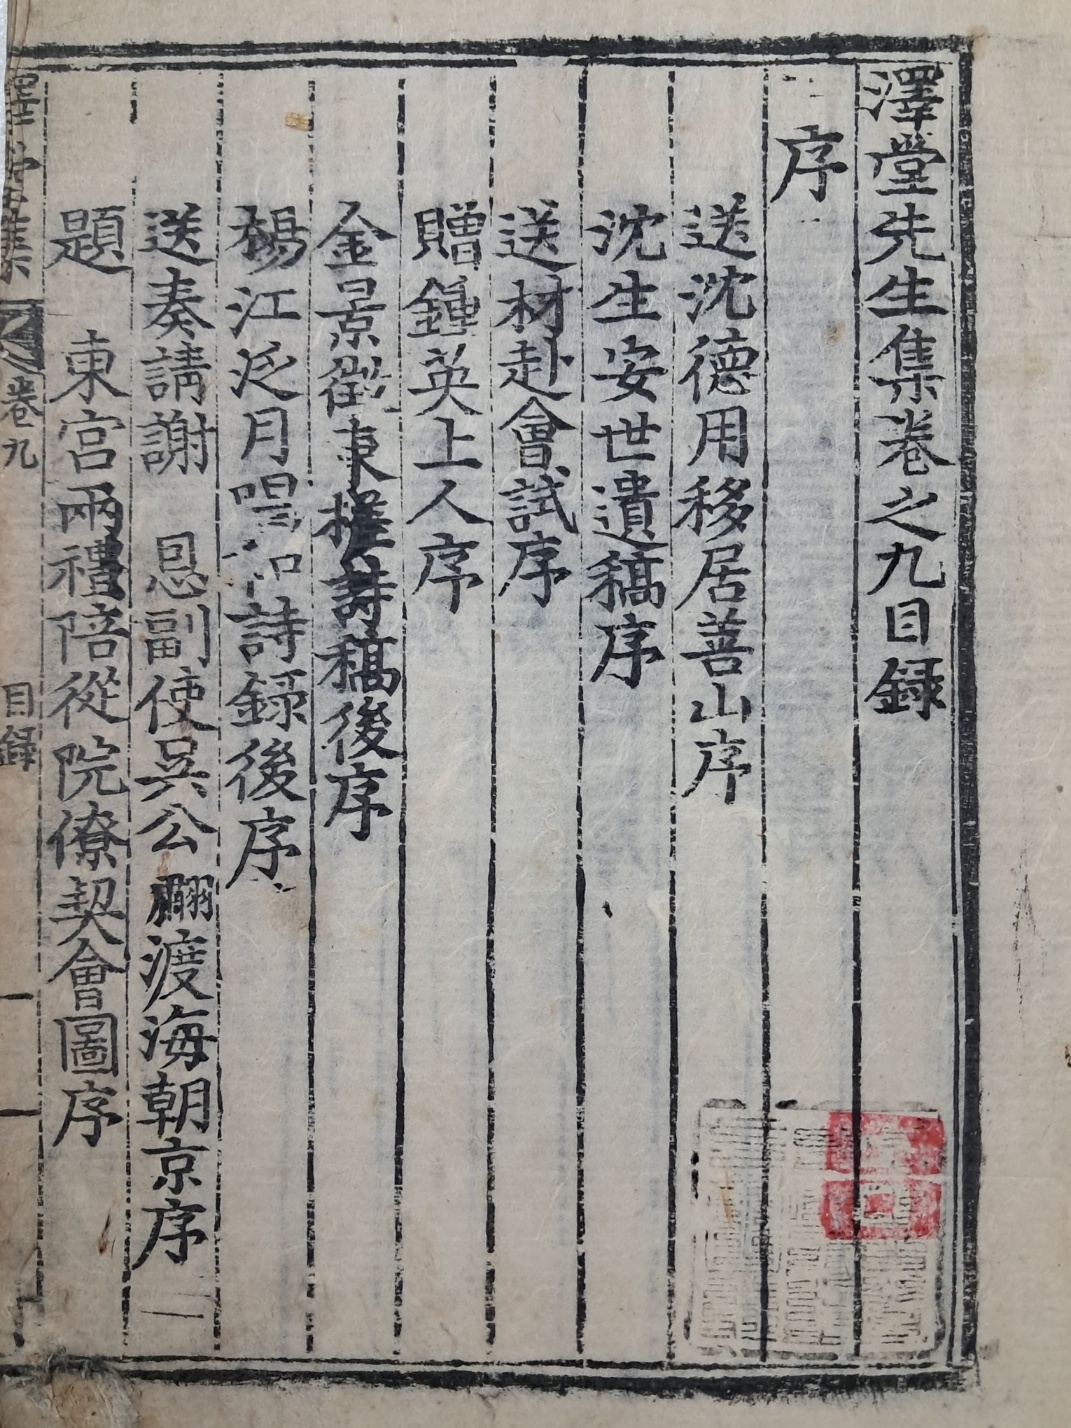 澤堂先生集卷之九目錄
序
送沈德用移居善山序
沈生安世遺稿序
送材赴會試序
贈鍾英上人序
金景徵東槎詩稿後序
楊江泛月唱和詩錄後序
送奏請謝 恩副使吳公翽渡海朝京序
題 東宮兩禮陪從院僚契會圖序
澤堂集 卷九 目錄 一